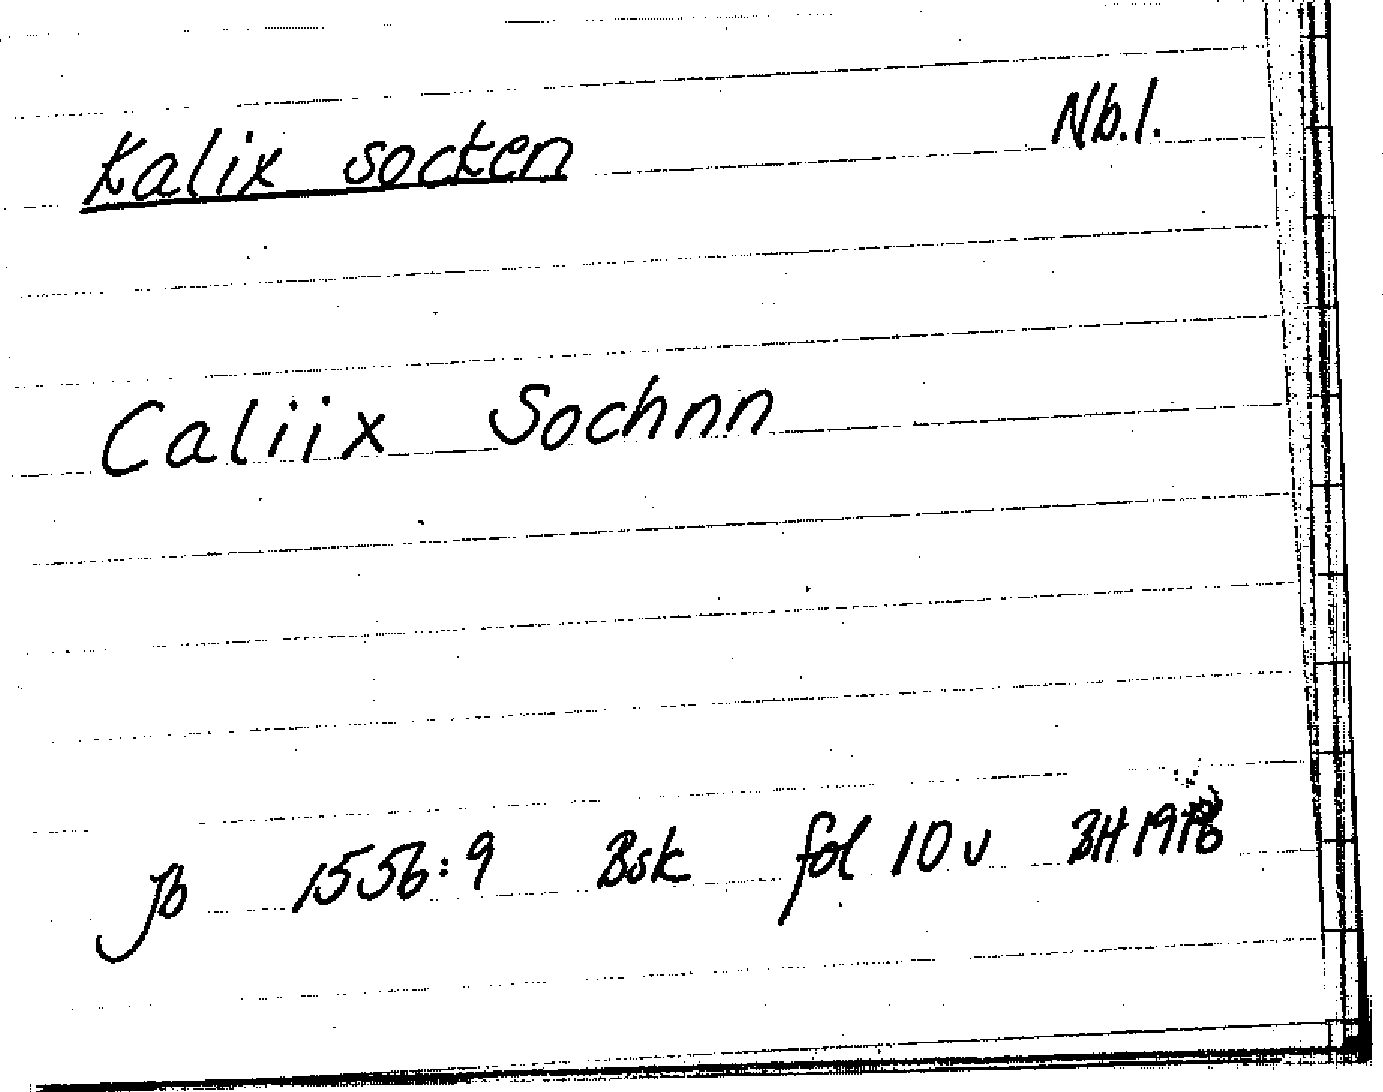 Kalix socken Nb.l.
Caliix Sochnn
Jb 1556:9 Bsk fol 10 v BH 1978